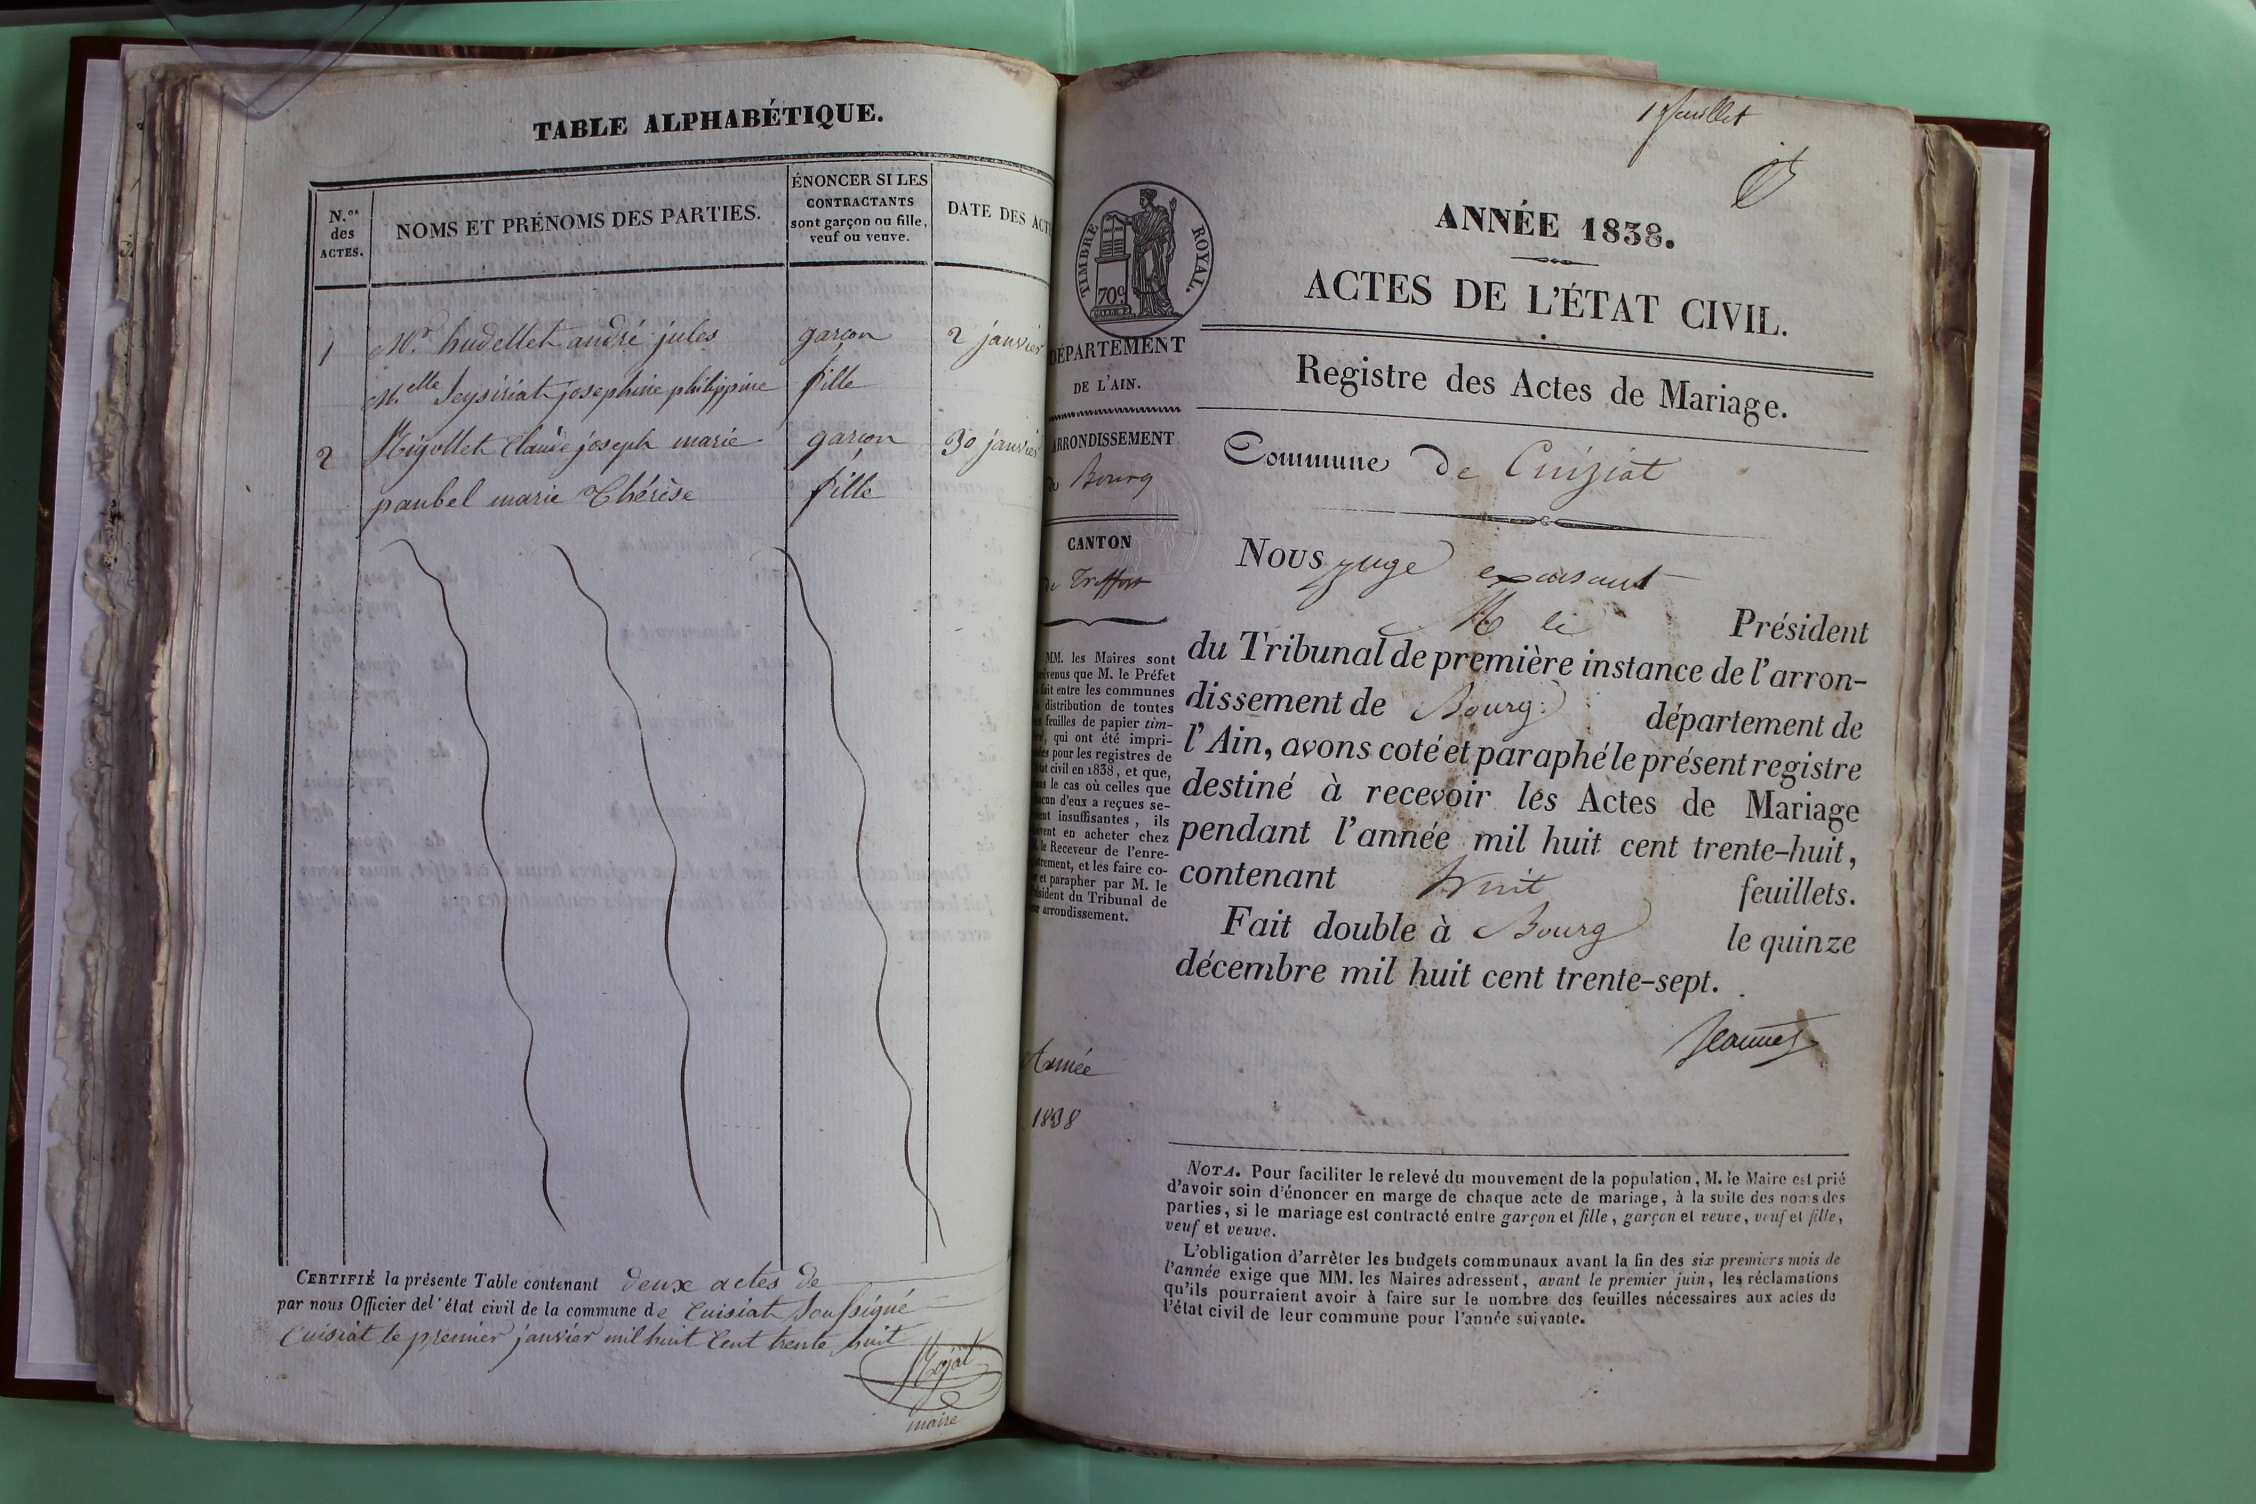 TABLE ALPHABÉTIQUE.
N.os des ACTES.
NOMS ET PRÉNOMS DES PARTIES.
ÉNONCER SI LES
CONTRACTANTS
sont garçon ou fille,
veuf ou veuve.
DATE DES ACT
1 Mr. hudellet andré jules garçon 2 janvier
Melle Seysiriat josephine philippine fille
2 Migollet Claude joseph marie garçon 30 janvier
paubel marie Thérèse fille
CERTIFIÉ la présente Table contenant deux actes de
par nous Officier del'état civil de la commune de Cuisiat Soussigné
Cuisiat le premier janvier mil huit Cent trente huit
maire
1 feuillet
TIMBRE ROYAL.
70c
ANNÉE 1838.
ACTES DE L'ÉTAT CIVIL.
Registre des Actes de Mariage.
Commune de Cuiziat
DÉPARTEMENT
DE L'AIN.
ARRONDISSEMENT
de Bourg
CANTON
de Treffort
MM. les Maires sont
venus que M. le Préfet
fait entre les communes
distribution de toutes
feuilles de papier tim-
, qui ont été impri-
pour les registres de
civil en 1838, et que,
le cas où celles que
d'eux a reçues se-
insuffisantes, ils
en acheter chez
le Receveur de l'enre-
, et les faire co-
et parapher par M. le
du Tribunal de
arrondissement.
Année
1838
Nous juge
M le Président
du Tribunal de première instance de l'arron-
dissement de Bourg département de
l'Ain, avons coté et paraphé le présent registre
destiné à recevoir les Actes de Mariage
pendant l'année mil huit cent trente-huit,
contenant huit feuillets.
Fait double à Bourg le quinze
décembre mil huit cent trente-sept.
NOTA. Pour faciliter le relevé du mouvement de la population, M. le Maire est prié
d'avoir soin d'énoncer en marge de chaque acte de mariage, à la suite des noms des
parties, si le mariage est contracté entre garçon et fille, garçon et veuve, veuf et fille,
veuf et veuve.
L'obligation d'arrêter les budgets communaux avant la fin des six premiers mois de
l'année exige que MM. les Maires adressent, avant le premier juin, les réclamations
qu'ils pourraient avoir à faire sur le nombre des feuilles nécessaires aux actes de
l'état civil de leur commune pour l'année suivante.